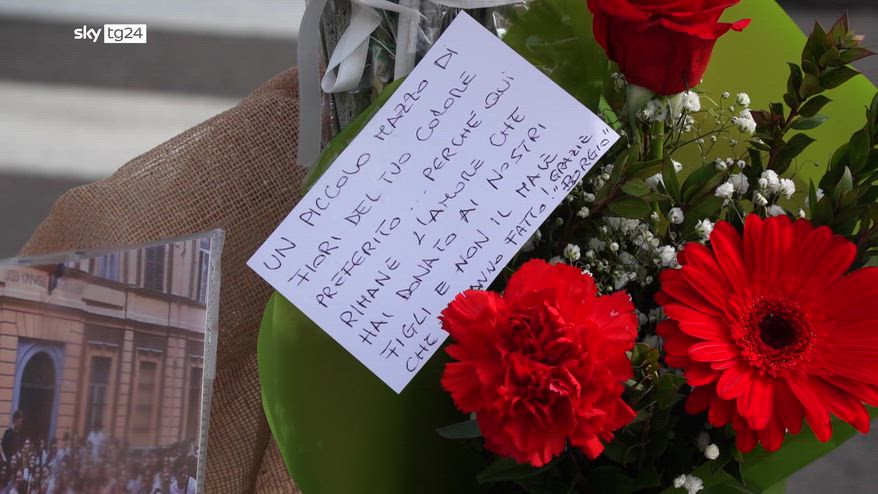 sky tg24
UN PICCOLO MAZZO DI
FIORI DEL TUO COLORE
PREFERITO ... PERCHÉ QUI
RIMANE L'AMORE CHE
HAI DONATO AI NOSTRI
FIGLI E NON IL MALE
CHE HANNO FATTO! GRAZIE
"BORGIO"